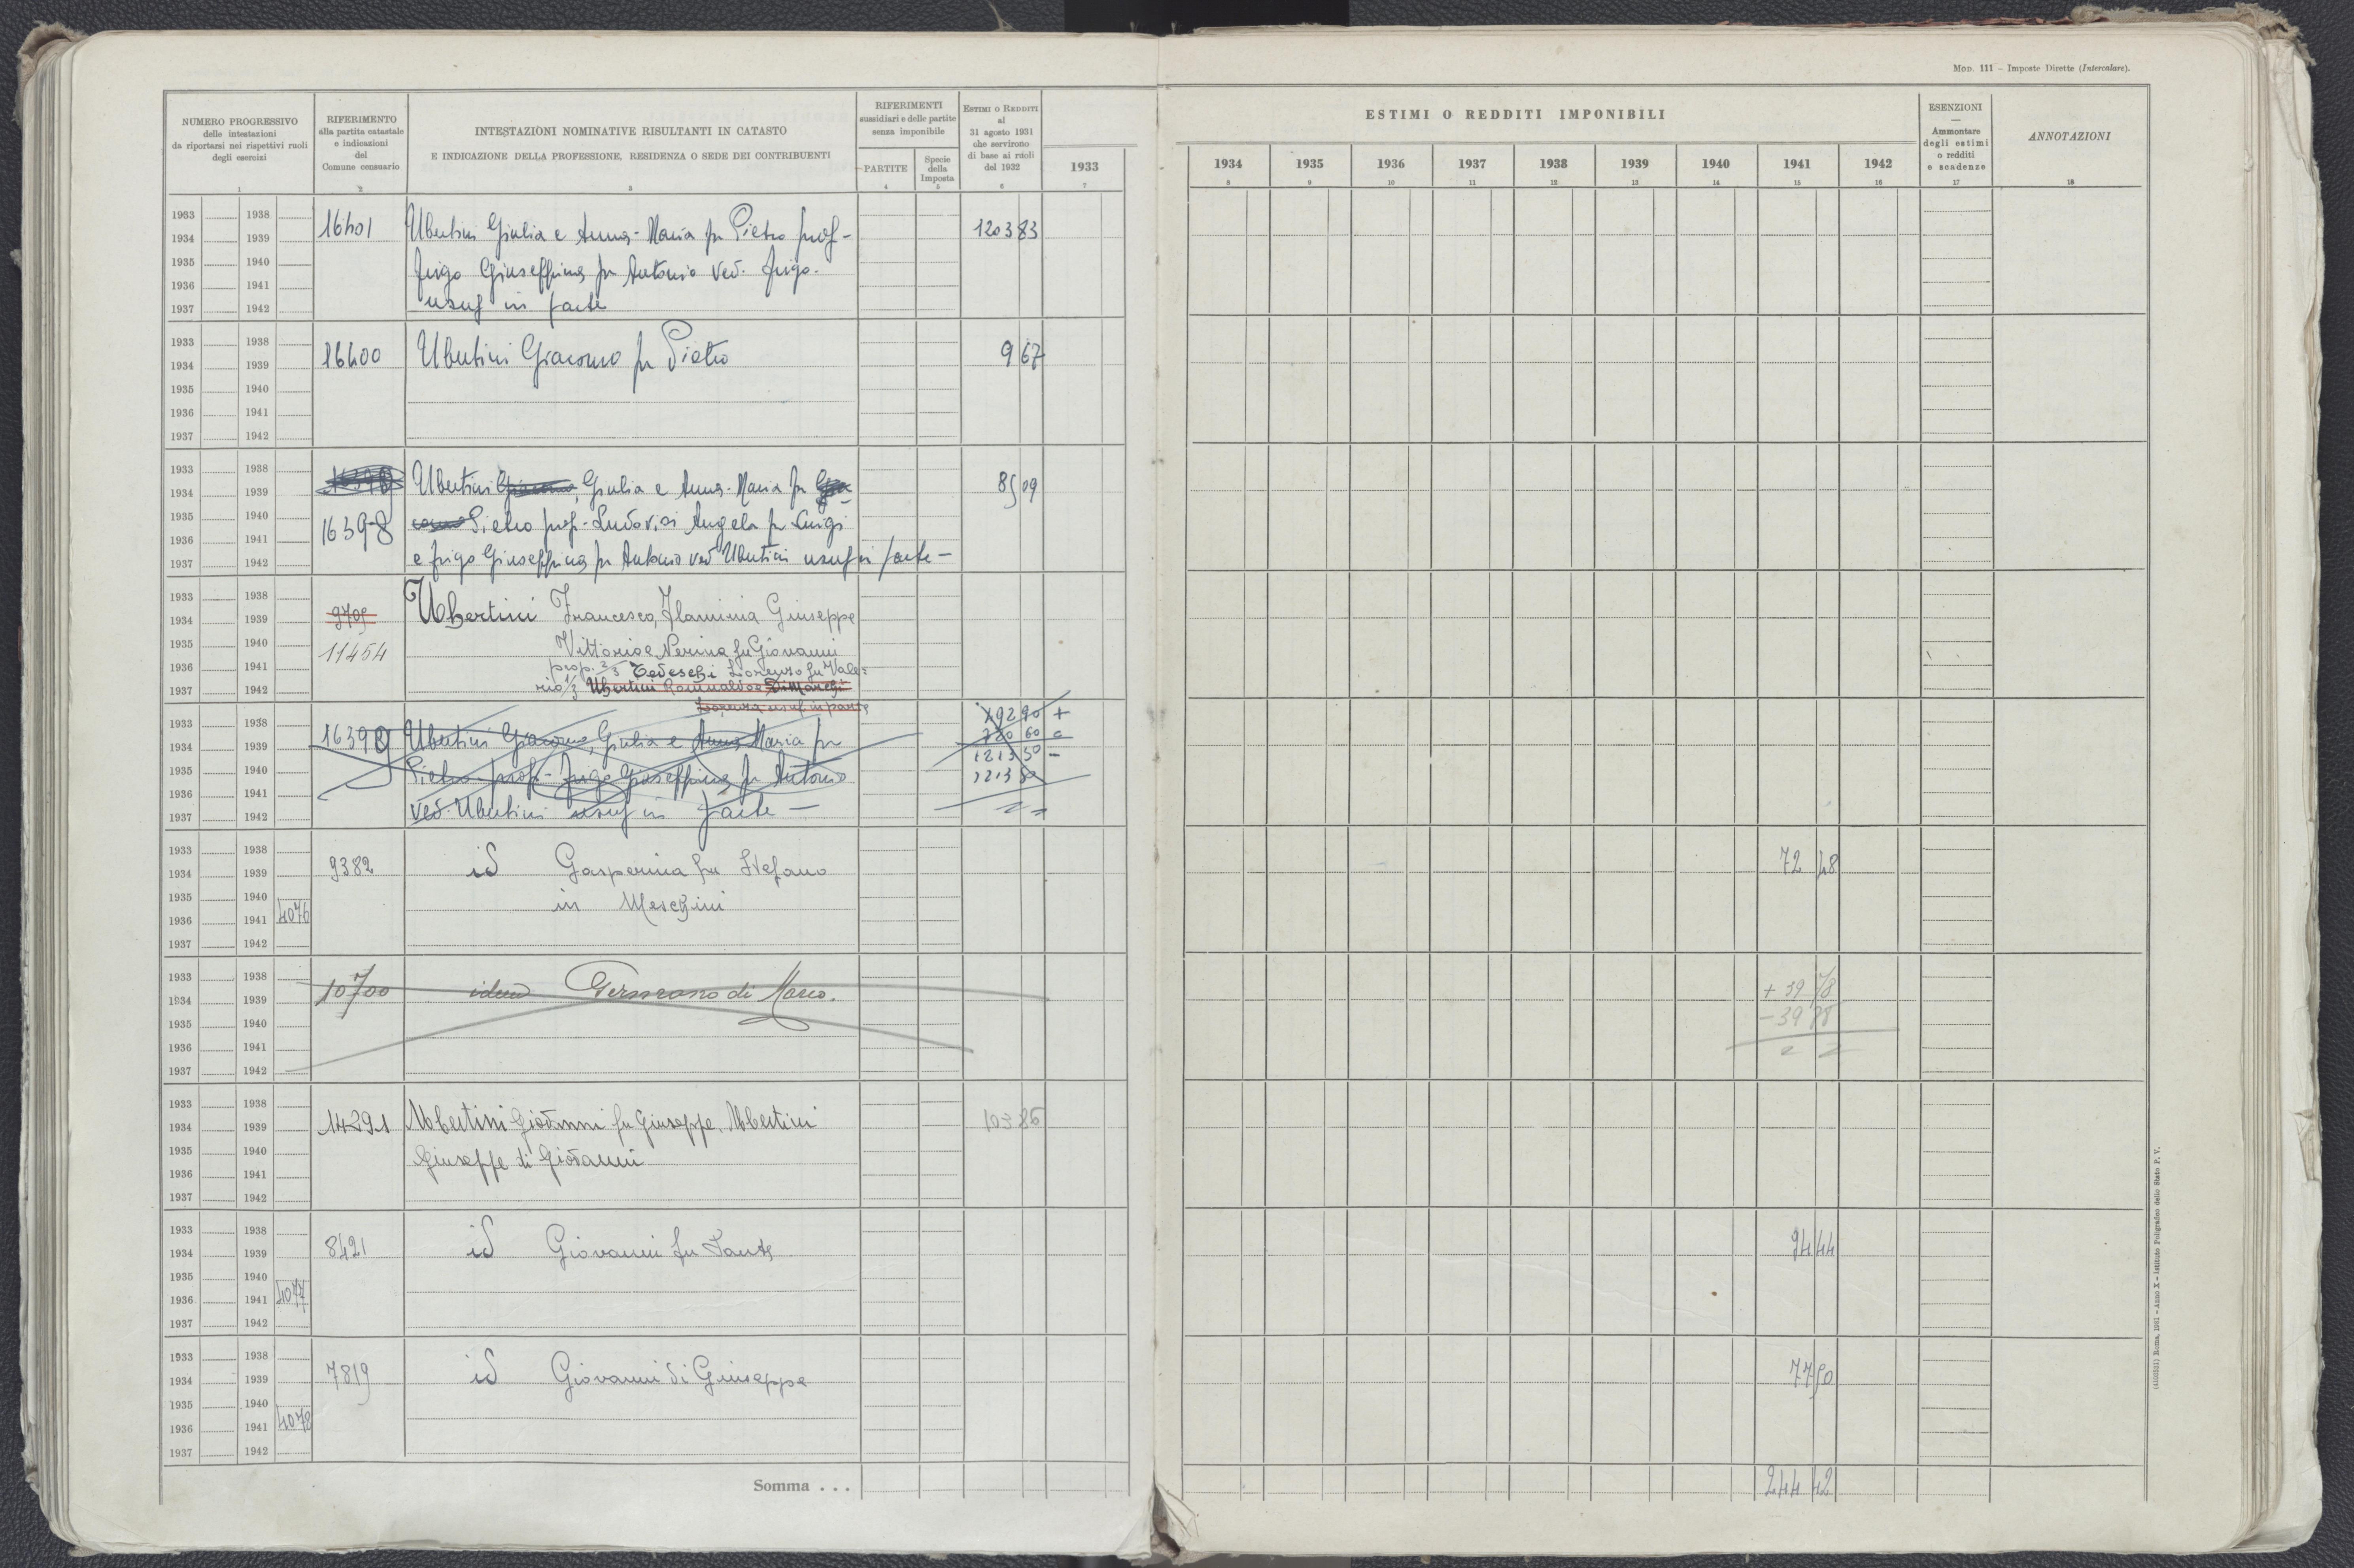 MOD. 111 – Imposte Dirette (Intercalare).
NUMERO PROGRESSIVO
delle intestazioni
da riportarsi nei rispettivi ruoli
degli esercizi
1
RIFERIMENTO
alla partita catastale
e indicazioni
del
Comune censuario
2
INTESTAZIONI NOMINATIVE RISULTANTI IN CATASTO
E INDICAZIONE DELLA PROFESSIONE, RESIDENZA O SEDE DEI CONTRIBUENTI
3
RIFERIMENTI
sussidiari e delle partite
senza imponibile
PARTITE
4
Specie
della
Imposta
5
ESTIMI O REDDITI
al
31 agosto 1931
che servirono
di base ai ruoli
del 1932
6
1933
7
ESTIMI O REDDITI IMPONIBILI
1934 1935 1936 1937 1938 1939 1940 1941 1942
8 9 10 11 12 13 14 15 16
ESENZIONI
—
Ammontare
degli estimi
o redditi
e scadenze
17
ANNOTAZIONI
18
1933 1938
1934 1939
1935 1940
1936 1941
1937 1942
16401 Ubertini Giulia e Anna-Maria fu Pietro prop-
Frigo Giuseppina fu Antonio ved. Frigo-
usuf in parte
1203 83
1933 1938
1934 1939
1935 1940
1936 1941
1937 1942
16400 Ubertini Giacomo fu Pietro 9 67
1933 1938
1934 1939
1935 1940
1936 1941
1937 1942
16398 Ubertini Giacomo, Giulia e Anna-Maria fu Gia
como Pietro prop- Ludovisi Angela fu Luigi
e Frigo Giuseppina fu Antonio ved Ubertini usuf in parte —
85 09
1933 1938
1934 1939
1935 1940
1936 1941
1937 1942
9705
11454
Ubertini Francesco, Flaminia Giuseppe
Vittorio e Nerina fu Giovanni
prop. Tedeschi Lorenzo fu Vale=
rio 1/3 Ubertini Romualdo e Di Marchi
usuf in parte
1933 1938
1934 1939
1935 1940
1936 1941
1937 1942
Ubertini Giacomo, Giulia e Anna Maria fu
Pietro prop- Frigo Giuseppina fu Antonio
ved. Ubertini usuf in parte —
1213 50 –
1213 50
1933 1938
1934 1939
1935 1940
1936 1941 4076
1937 1942
9382 id Gasperina fu Stefano
in Meschini
72 48
1933 1938
1934 1939
1935 1940
1936 1941
1937 1942
10700 idem Germano di Marco.
+ 39 78
– 39 78
1933 1938
1934 1939
1935 1940
1936 1941
1937 1942
14291 Ubertini Giovanni fu Giuseppe, Ubertini
Giuseppe di Giovanni
103 86
1933 1938
1934 1939
1935 1940
1936 1941 4077
1937 1942
8421 id Giovanni fu Sante
94 44
1933 1938
1934 1939
1935 1940
1936 1941 4078
1937 1942
7819 id Giovanni di Giuseppe
77 50
Somma . . .
244 42
Roma, 1931 – Anno X – Istituto Poligrafico dello Stato P. V.